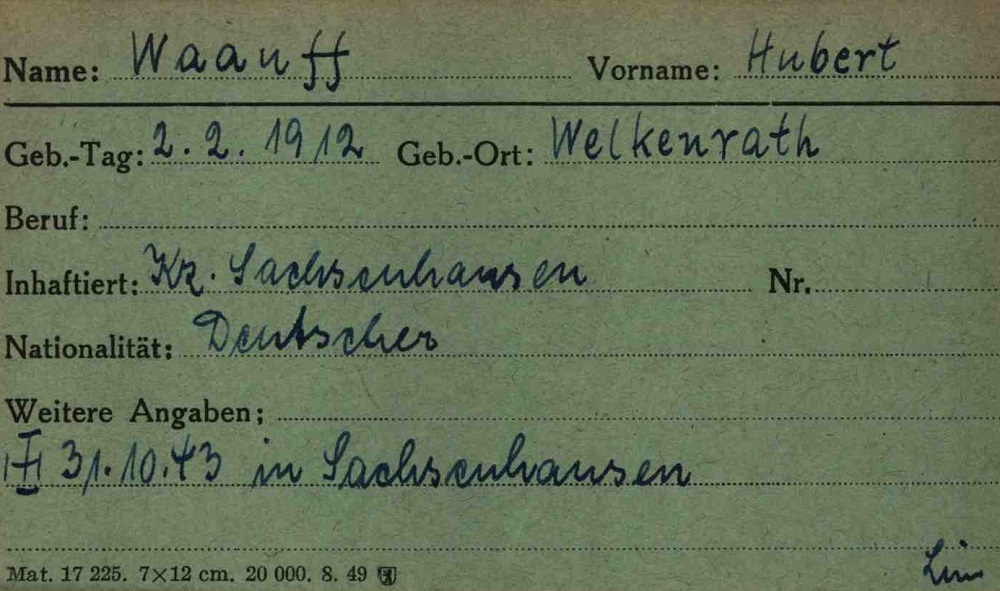 Name: Waauff Vorname: Hubert
Geb.-Tag: 2. 2. 1912 Geb.-Ort: Welkenrath
Beruf:
Inhaftiert: Kz. Sachsenhausen Nr.
Nationalität: Deutscher
Weitere Angaben:
31.10.43 in Sachsenhausen
Mat. 17 225. 7×12 cm. 20 000. 8. 49